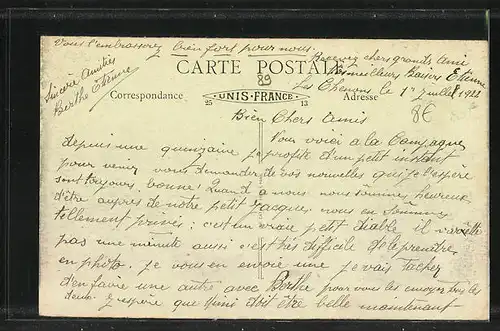 Vous l'embrasserez bien fort pour nous.
Recevez chers grands Ami
Meilleurs Baisers Etienne
Sincère Amitiés
Berthe Etienne
CARTE POSTALE
89
Les Chenons le 1er juillet 1922
Correspondance
UNIS-FRANCE
25
13
Adresse
8€
Bien Chers Amis
Vous voici à la Campagne
depuis une quinzaine je profite d'un petit instant
pour venir vous demander de vos nouvelles qui je l'espère
sont toujours bonne! Quand à nous nous sommes heureux
d'être auprès de notre petit Jacques nous en sommes
tellement privés: c'est un vraie petit diable il n'arrête
pas une minute aussi c'est très difficile de le prendre
en photo. Je vous en envoie une je vais tâcher
d'en faire une autre avec Berthe pour vous les envoyer tous les
deux. J'espère que doit être belle maintenant